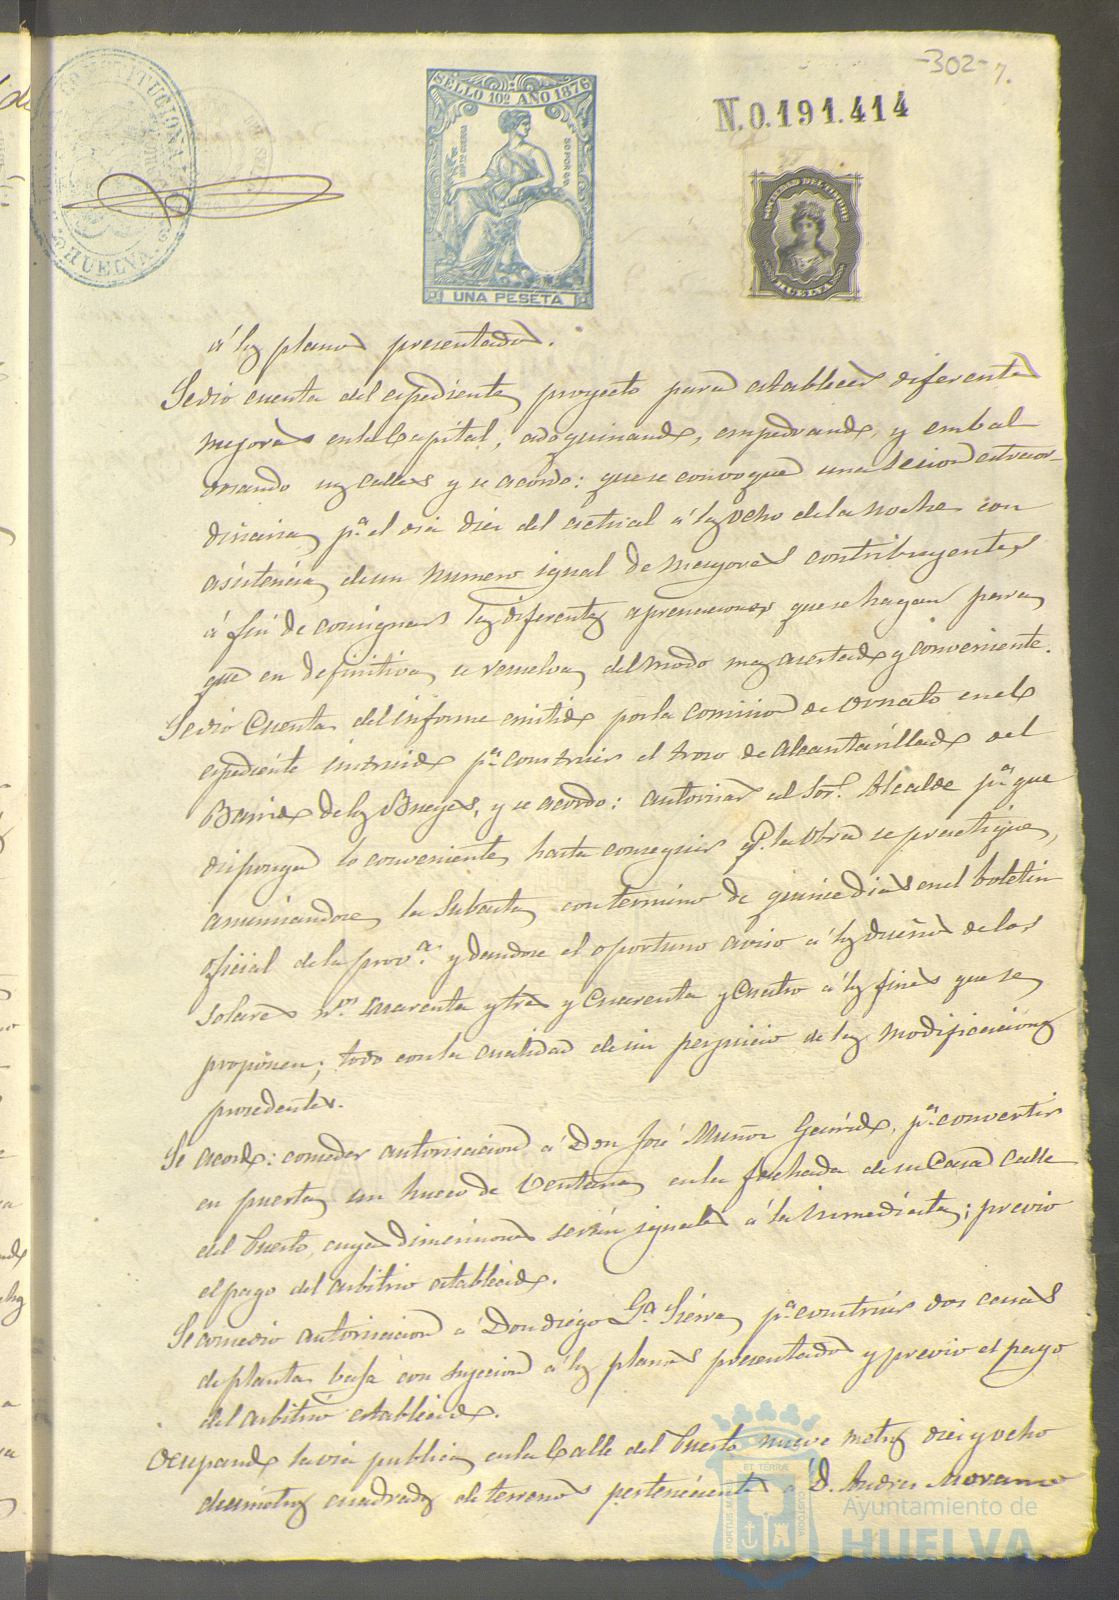 -302- 7.
CONSTITUCIONAL
HUELVA
SELLO 10º AÑO 1876
UNA PESETA
N.0.191.414
SOCIEDAD DEL TIMBRE
HUELVA
á los planos presentados.
Se dió cuenta del espediente, proyecto para establecer diferentes
mejoras en la Capital, adoquinando, empedrando, y embal
dosando sus calles y se acordó: que se convoque una sesion estraor-
dinaria, pª el dia diez del actual á las ocho de la noche con
asistencia de un numero igual de mayores contribuyentes
á fin de consignar las diferentes apreciaciones que se hagan para
que en definitiva se resuelva del modo mas acertado y conveniente.
Se dió Cuenta del informe emitido por la comision de ornato en el
espediente instruido pª construir el trozo de Alcantarillado del
Barrio de los Bueyes, y se acordó: autorizar al Sor. Alcalde pª que
disponga lo conveniente hasta conseguir q. la obra se practique,
anunciandose la Subasta con termino de quince dias en el boletin
oficial de la provª. y dandose el oportuno aviso á los dueños de los
solares nos cuarenta y tres y Cuarenta y Cuatro á los fines que se
proponen; todo con la cualidad de sin perjuicio de las modificaciones
procedentes.
Se acordó: conceder autorizacion á Don José Muñoz Garrido, pª convertir
en puerta un hueco de Ventana en la fachada de su Casa Calle
del Puerto, cuyas dimensiones serán iguales á la inmediata; previo
el pago del arbitrio establecido.
Se concedió autorizacion á Don diego Gª Sierra, pª construir dos casas
de planta baja con sujecion á los planos presentados y previo el pago
del arbitrio establecido.
Ocupando la via publica en la Calle del Puerto nueve metros diez y ocho
decimetros cuadrados de terreno perteneciente á D. Andres Moreno
PORTUS MARIS ET TERRAE CUSTODIA
Ayuntamiento de
HUELVA